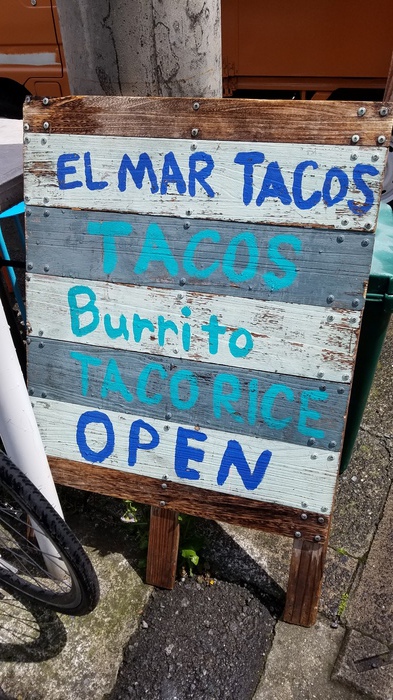 EL MAR TACOS
TACOS
Burrito
TACORICE
OPEN